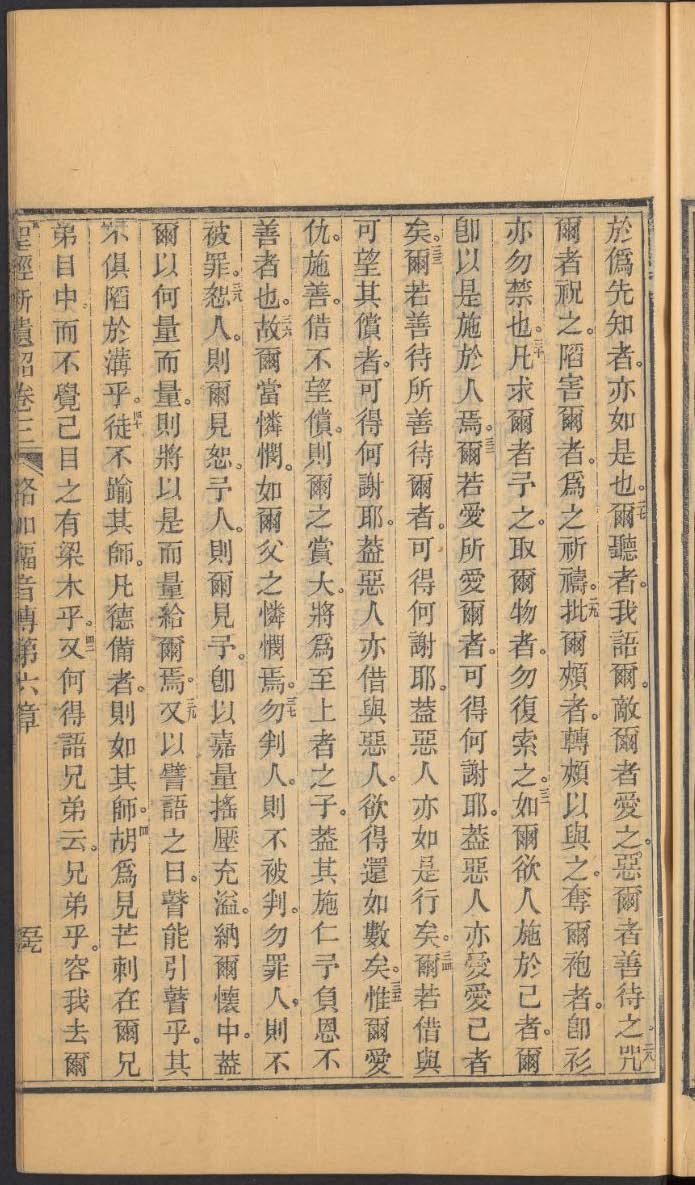 於僞先知者。亦如是也。二七爾聽者。我語爾。敵爾者愛之。惡爾者善待之。二八咒
爾者祝之。陷害爾者。爲之祈禱。二九批爾頰者。轉頰以與之。奪爾袍者。卽衫
亦勿禁也。三十凡求爾者予之。取爾物者。勿復索之。三一如爾欲人施於己者。爾
卽以是施於人焉。三二爾若愛所愛爾者。可得何謝耶。蓋惡人亦愛愛己者
矣。三三爾若善待所善待爾者。可得何謝耶。蓋惡人亦如是行矣。三四爾若借與
可望其償者。可得何謝耶。蓋惡人亦借與惡人。欲得還如數矣。三五惟爾愛
仇。施善。借不望償。則爾之賞大。將爲至上者之子。蓋其施仁予負恩不
善者也。三六故爾當憐憫。如爾父之憐憫焉。三七勿判人。則不被判。勿罪人。則不
被罪。恕人。則爾見恕。三八予人。則爾見予。卽以嘉量搖壓充溢。納爾懷中。蓋
爾以何量而量。則將以是而量給爾焉。三九又以譬語之曰。瞽能引瞽乎。其
不俱陷於溝乎。四十徒不踰其師。凡德備者。則如其師。四一胡爲見芒刺在爾兄
弟目中。而不覺己目之有梁木乎。四二又何得語兄弟云。兄弟乎。容我去爾
聖經新遺詔卷三 路加福音傳第六章